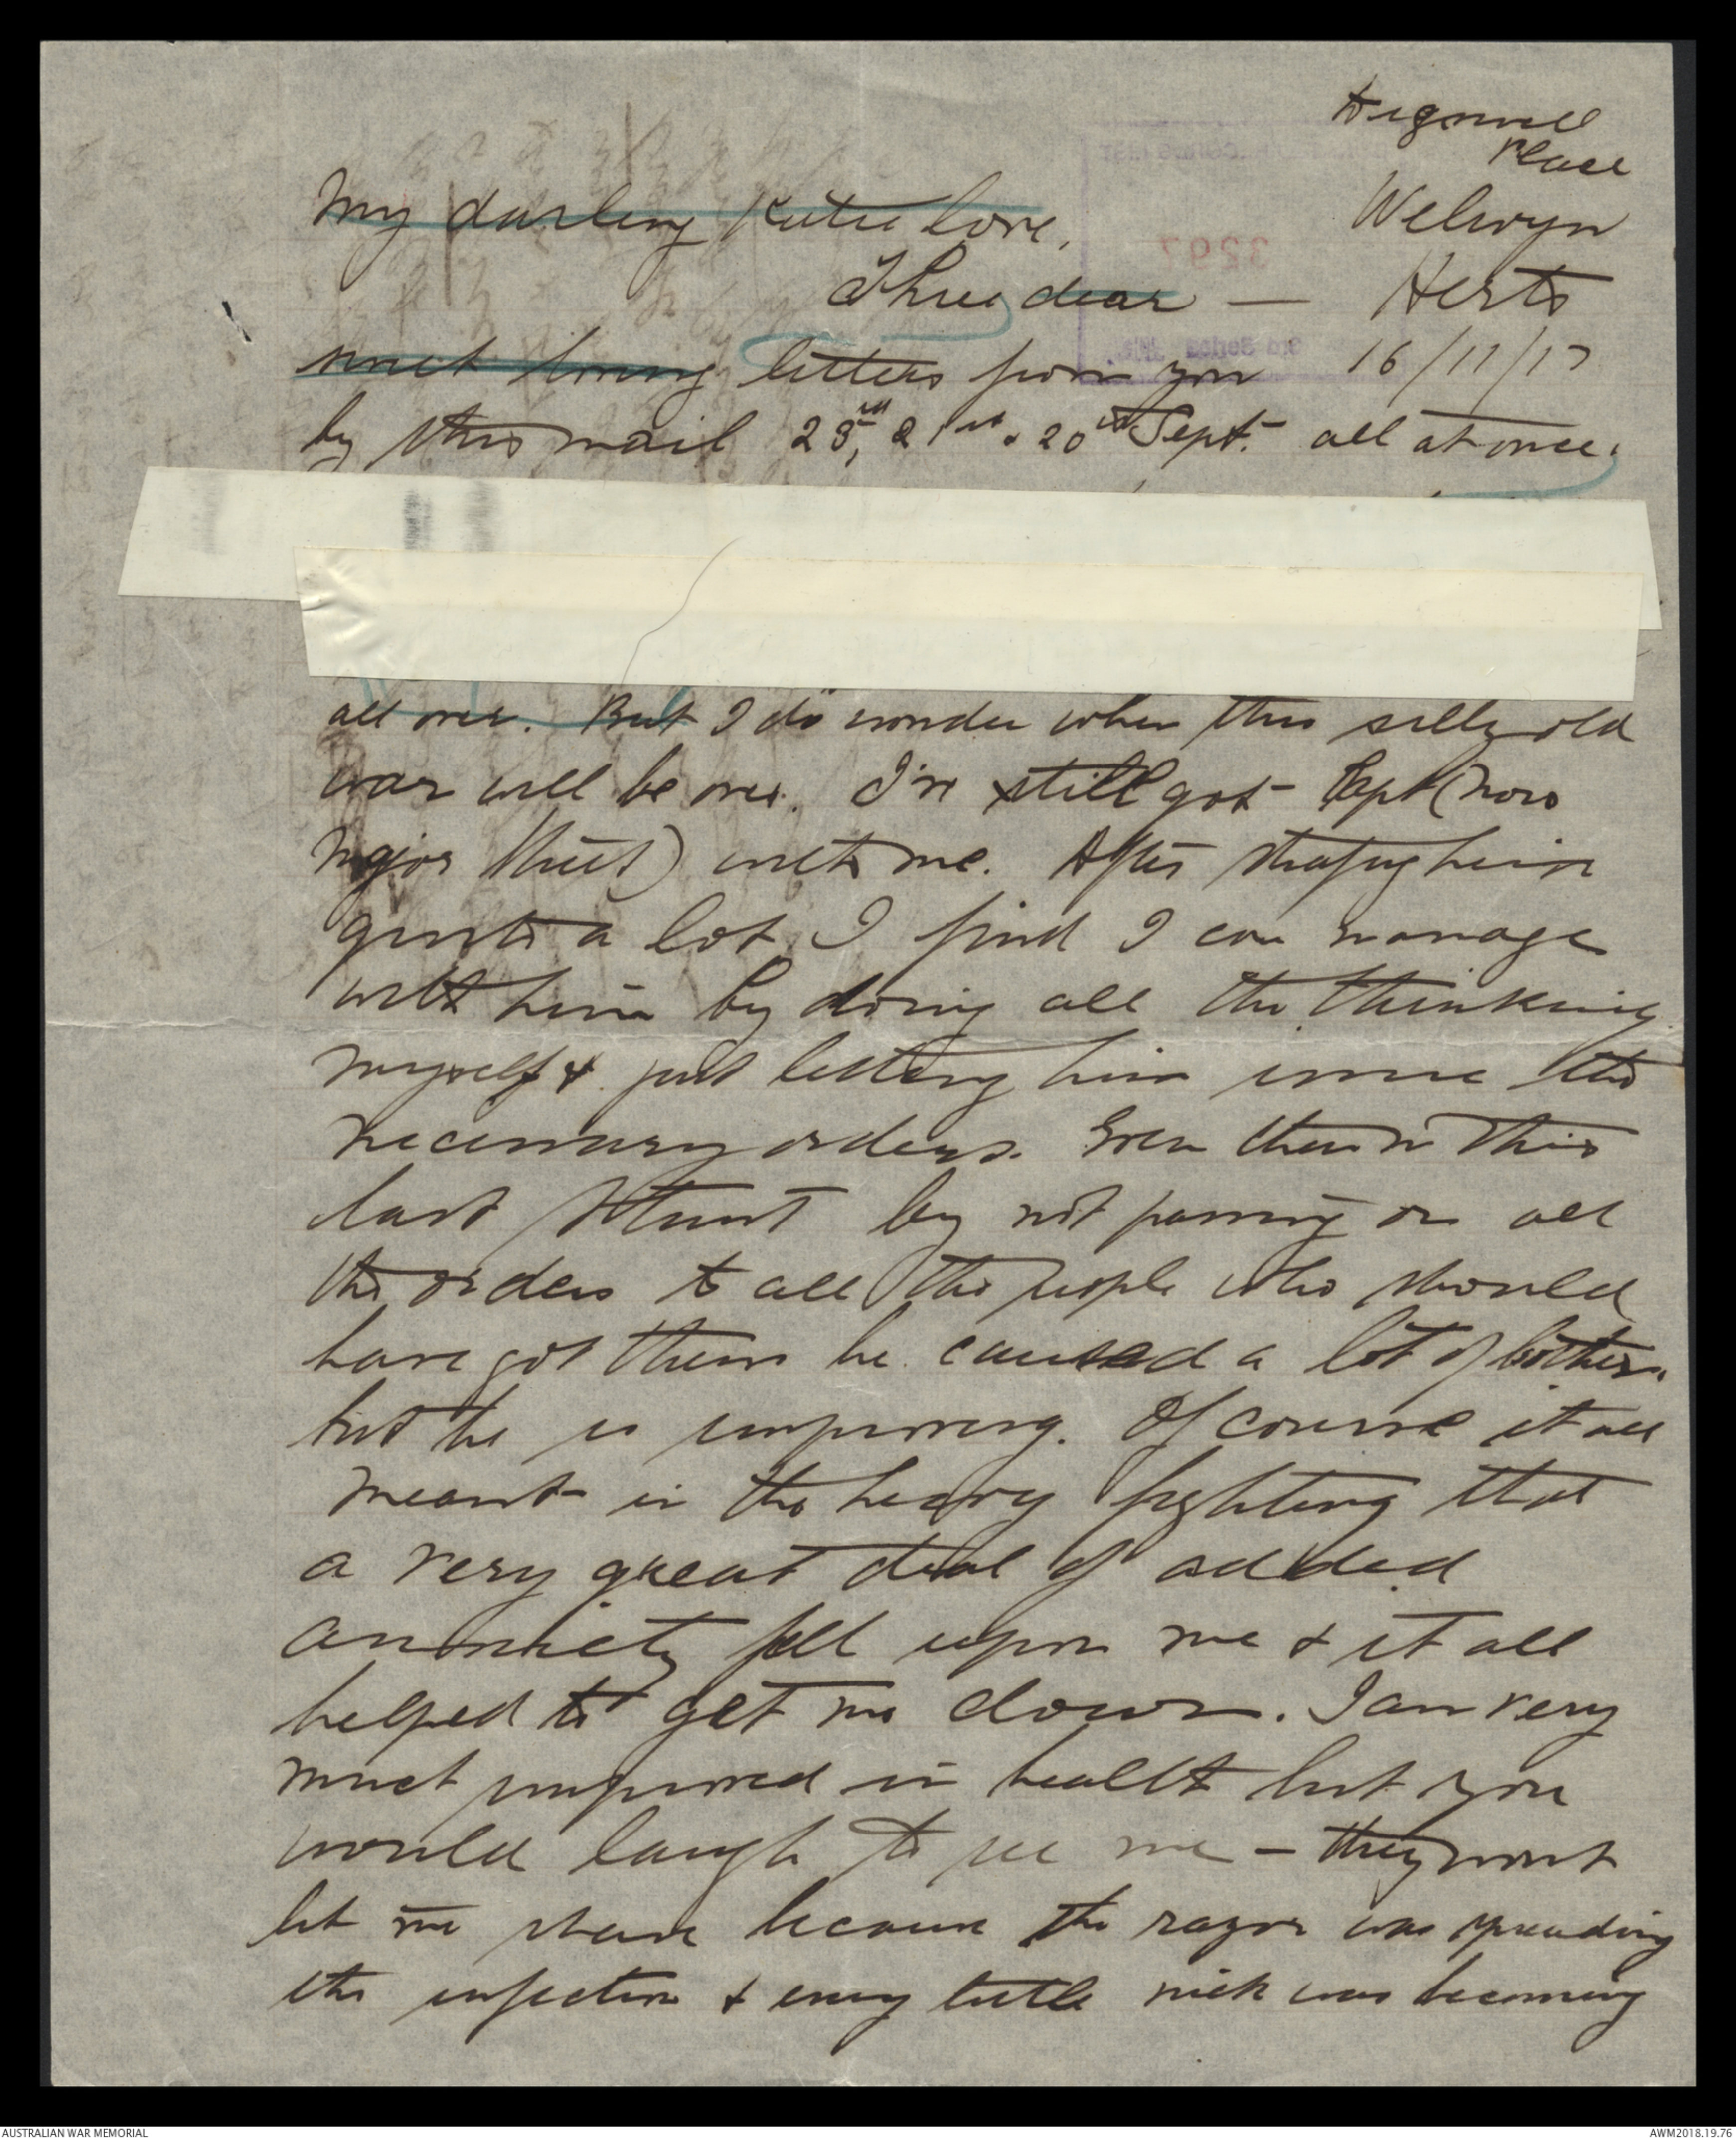 Digswell
Place
Welwyn
Herts
16/11/17
My darling Katie love,
Three dear —
sweet loving letters from you
by this mail 23rd, 21st & 20th Sept. all at once.
all over. But I do wonder when this silly old
war will be over. I've still got Capt (now
Major) with me. After strafing him
quite a lot, I find I can manage
with him by doing all the thinking
myself & just letting him issue the
necessary orders. Even then in this
last stunt by not passing on all
the orders to all the people who should
have got them he caused a lot of bother.
but he is improving. Of course it all
meant in the heavy fighting that
a very great deal of added
anxiety fell upon me & it all
helped to get me down. I am very
much improved in health but you
would laugh to see me – they wont
let me shave because the razor was spreading
the infection & every little nick was becoming
3297
AUSTRALIAN WAR MEMORIAL
AWM2018.19.76